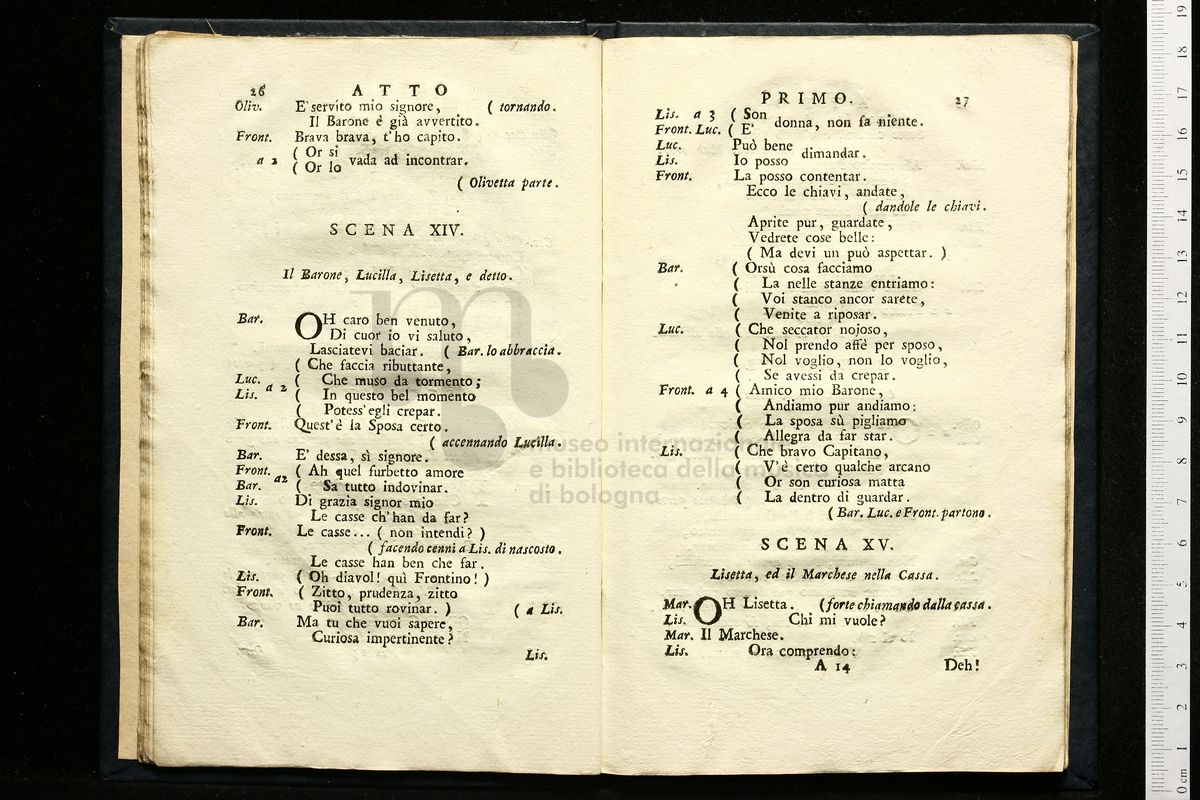 26 ATTO
Oliv. E' servito mio signore, ( tornando.
Il Barone è già avvertito.
Front. Brava brava, t'ho capito.
a 2 ( Or si
( Or lo vada ad incontrar.
( Olivetta parte.
SCENA XIV.
Il Barone, Lucilla, Lisetta, e detto.
Bar. OH caro ben venuto,
Di cuor io vi saluto,
Lasciatevi baciar. ( Bar. lo abbraccia.
( Che faccia ributtante,
Luc. a 2 ( Che muso da tormento;
Lis. ( In questo bel momento
( Potess' egli crepar.
Front. Quest'è la Sposa certo.
( accennando Lucilla.
Bar. E' dessa, sì signore.
Front. a2 ( Ah quel furbetto amore
Bar. ( Sa tutto indovinar.
Lis. Di grazia signor mio
Le casse ch' han da far?
Front. Le casse... ( non intendi? )
( facendo cenni a Lis. di nascosto.
Le casse han ben che far.
Lis. ( Oh diavol! quì Frontino! )
Front. ( Zitto, prudenza, zitto
Puoi tutto rovinar. ) ( a Lis.
Bar. Ma tu che vuoi sapere,
Curiosa impertinente?
Lis.
PRIMO. 27
Lis. a 3 ( Son
Front. Luc. ( E' donna, non fa niente.
Luc. Può bene
Lis. Io posso dimandar.
Front. La posso contentar.
Ecco le chiavi, andate,
( dandole le chiavi.
Aprite pur, guardate,
Vedrete cose belle:
( Ma devi un può aspettar. )
Bar. ( Orsù cosa facciamo
( La nelle stanze entriamo:
( Voi stanco ancor sarete,
( Venite a riposar.
Luc. ( Che seccator nojoso,
( Nol prendo affè per sposo,
( Nol voglio, non lo voglio,
( Se avessi da crepar.
Front. a 4 ( Amico mio Barone,
( Andiamo pur andiamo:
( La sposa sù pigliamo
( Allegra da far star.
Lis. ( Che bravo Capitano,
( V'è certo qualche arcano
( Or son curiosa matta
( La dentro di guardar.
( Bar. Luc. e Front. partono.
SCENA XV.
Lisetta, ed il Marchese nella Cassa.
Mar. OH Lisetta. (forte chiamando dalla cassa.
Lis. Chi mi vuole?
Mar. Il Marchese.
Lis. Ora comprendo:
A 14 Deh!
museo internazionale
e biblioteca della musica
di bologna
0 cm 1 2 3 4 5 6 7 8 9 10 11 12 13 14 15 16 17 18 19